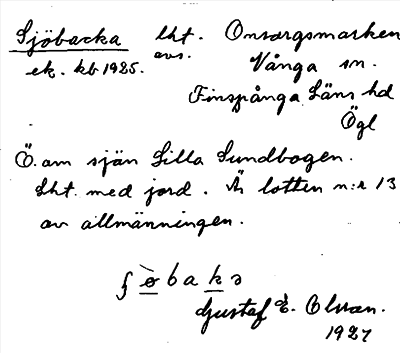 Sjöbacka lht. Onsorgsmarken
ek. kb 1925. avs. Vånga sn.
Finspånga Läns hd
Ögl
Ö. om sjön Lilla Sundbogen.
Lht. med jord. Är lotten n:r 13
av allmänningen.
Gustaf E. Olsson.
1927